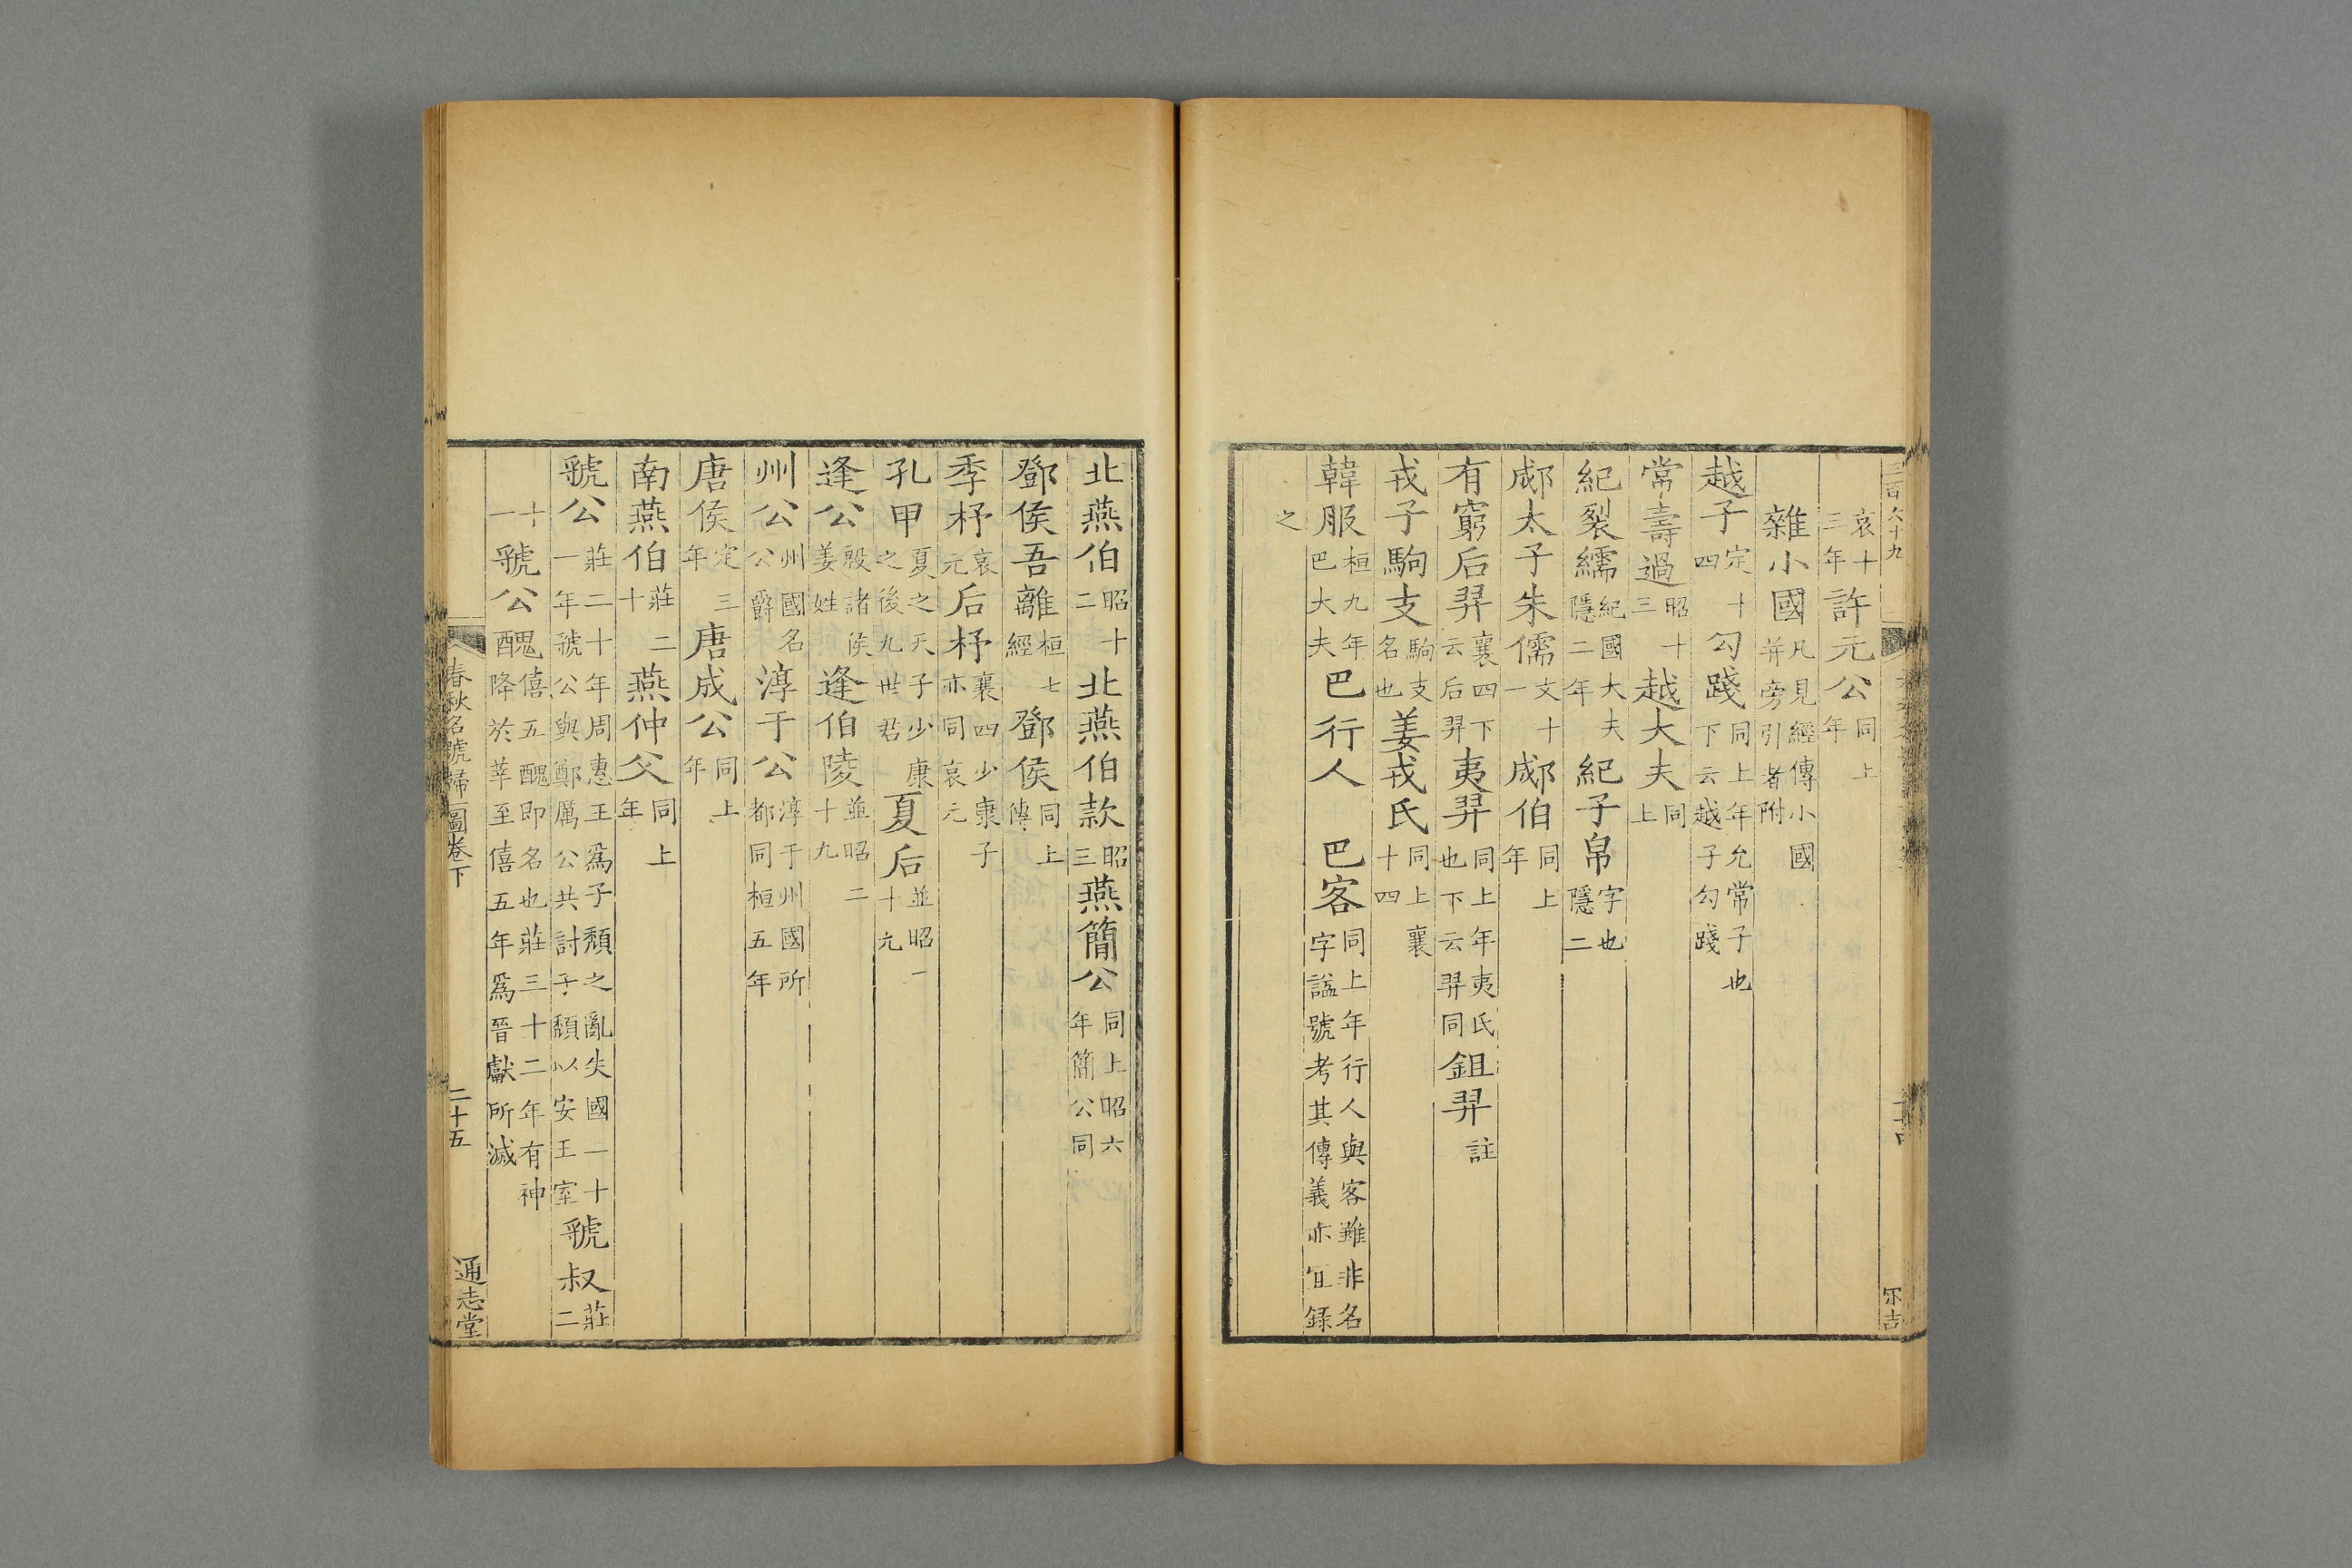 哀十三年許元公同上年
雜小國凡見經傳小國幷旁引者附
越子定十四勾踐同上年允常子也下云越子勾踐
常壽過昭十三越大夫同上
紀裂繻紀國大夫隱二年紀子帛字也隱二
郕太子朱儒文十一郕伯同上年
有窮后羿襄四下云后羿夷羿同上年夷氏也下云羿同鉏羿註
戎子駒支駒支名也姜戎氏同上襄十四
韓服桓九年巴大夫巴行人 巴客同上年行人與客雖非名字謚號考其傳義亦宜録
之
北燕伯昭十二北燕伯款昭三燕簡公同上昭六年簡公同
鄧侯吾離桓七經鄧侯同上傳
季杼哀元后杼襄四少康子亦同哀元
孔甲夏之天子少康之後九世君夏后並昭一十九
逄公殷諸侯姜姓逄伯陵並昭二十九
州公州國名公爵淳于公淳于州國所都同桓五年
唐侯定三年唐成公同上年
南燕伯莊二十燕仲父同上年
虢公莊二十年周惠王爲子頹之亂失國一十一年虢公與鄭厲公共討子頹以安王室虢叔莊二
十一虢公醜僖五醜即名也莊三十二年有神降於莘至僖五年爲晉獻所滅
春秋名號歸一圖卷下
二十五
通志堂